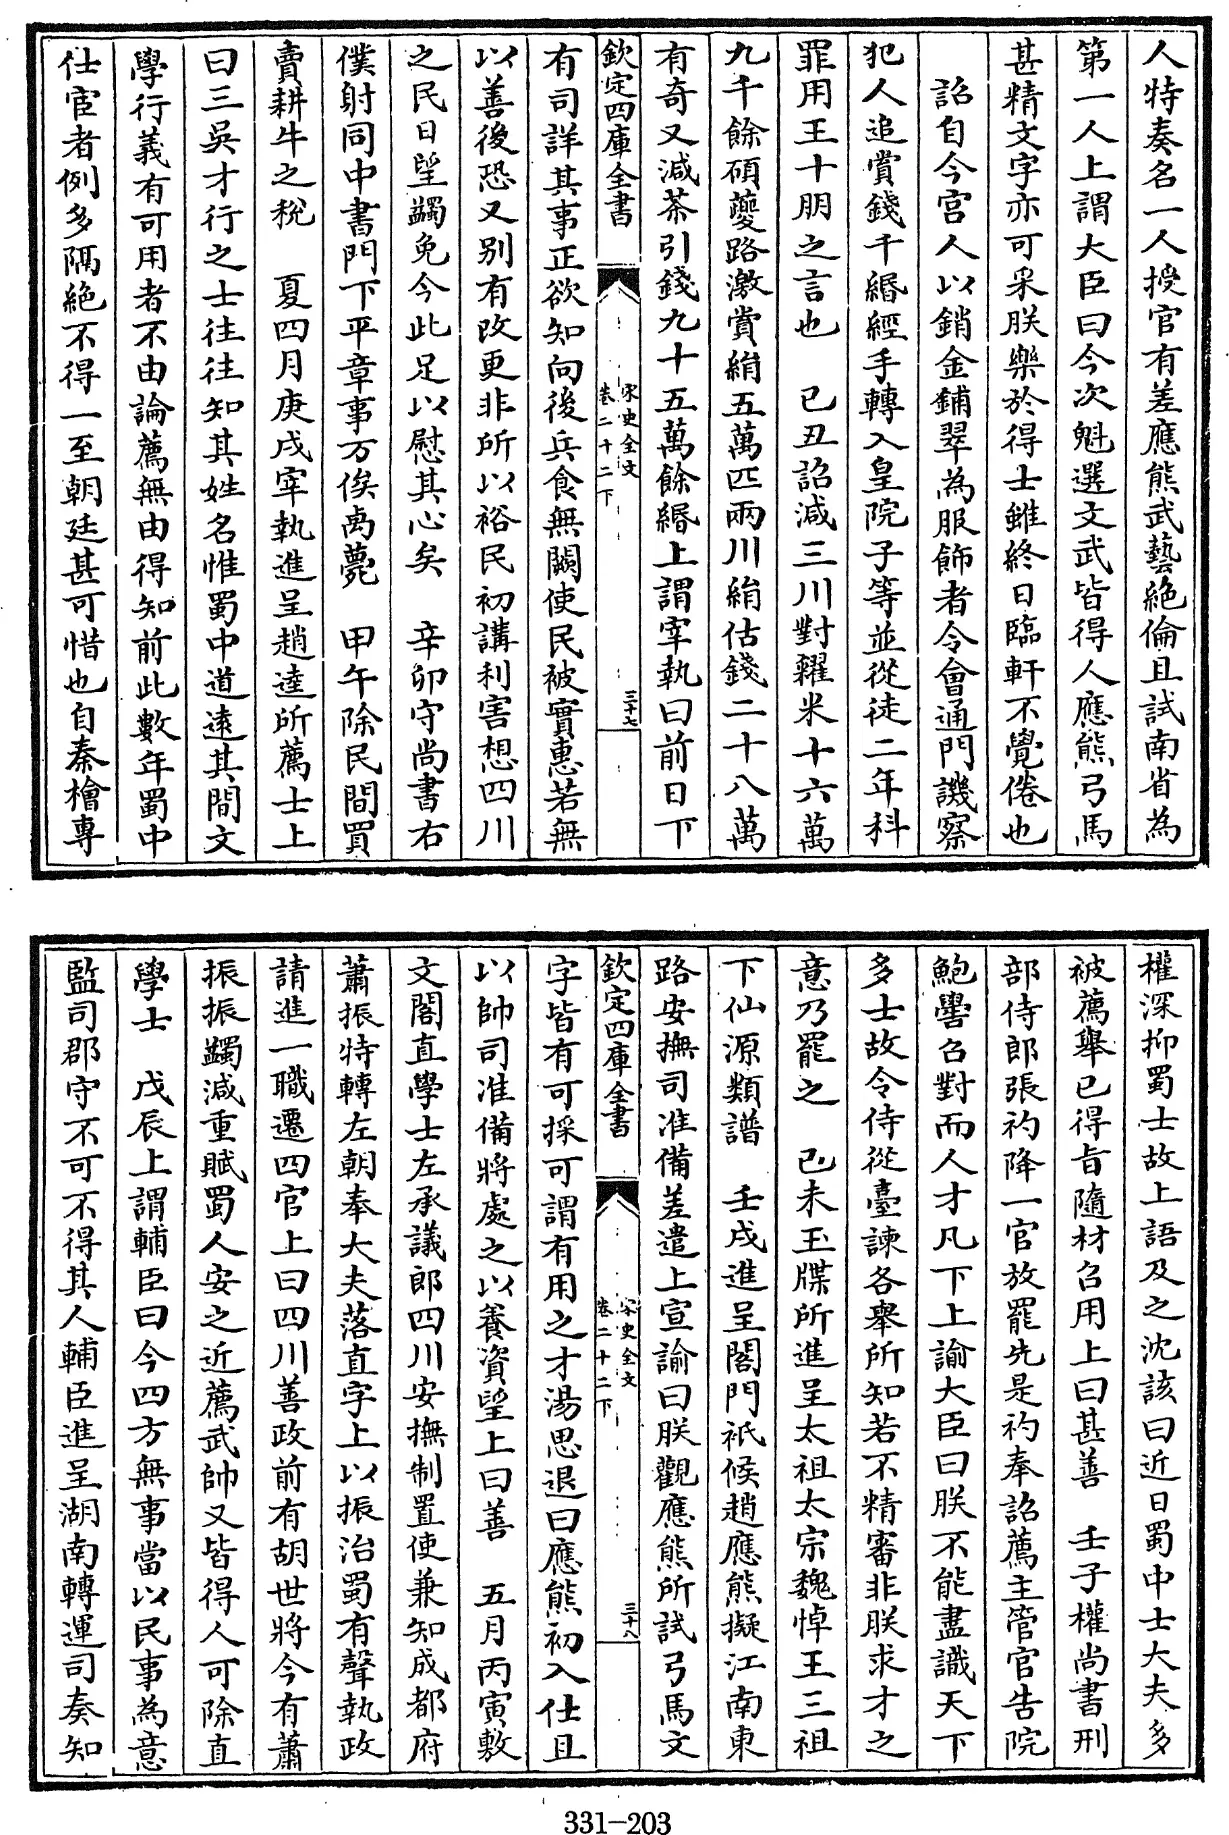 人特奏名一人授官有差應熊武藝絶倫且試南省為
第一人上謂大臣曰今次魁選文武皆得人應熊弓馬
甚精文字亦可采朕樂於得士雖終日臨軒不覺倦也
詔自今宫人以銷金鋪翠為服飾者令會通門譏察
犯人追賞錢千緡經手轉入皇院子等並從徒二年科
罪用王十朋之言也　己丑詔減三川對糴米十六萬
九千餘碩夔路激賞絹五萬匹兩川絹估錢二十八萬
有奇又減茶引錢九十五萬餘緡上謂宰執曰前日下
欽定四庫全書
宋史全文
卷二十二下
三十七
有司詳其事正欲知向後兵食無闕使民被實惠若無
以善後恐又别有改更非所以裕民初講利害想四川
之民日望蠲免今此足以慰其心矣　辛卯守尚書右
僕射同中書門下平章事万俟卨薨　甲午除民間買
賣耕牛之稅　夏四月庚戌宰執進呈趙逵所薦士上
曰三吳才行之士往往知其姓名惟蜀中道遠其間文
學行義有可用者不由論薦無由得知前此數年蜀中
仕宦者例多隔絶不得一至朝廷甚可惜也自秦檜專
權深抑蜀士故上語及之沈該曰近日蜀中士大夫多
被薦舉已得旨隨材召用上曰甚善　壬子權尚書刑
部侍郎張礿降一官放罷先是礿奉詔薦主管官告院
鮑嚳召對而人才凡下上諭大臣曰朕不能盡識天下
多士故令侍從臺諫各舉所知若不精審非朕求才之
意乃罷之　己未玉牒所進呈太祖太宗魏悼王三祖
下仙源類譜　壬戌進呈閤門祇候趙應熊擬江南東
路安撫司准備差遣上宣諭曰朕觀應熊所試弓馬文
欽定四庫全書
宋史全文
卷二十二下
三十八
字皆有可採可謂有用之才湯思退曰應熊初入仕且
以帥司准備將處之以養資望上曰善　五月丙寅敷
文閣直學士左承議郎四川安撫制置使兼知成都府
蕭振特轉左朝奉大夫落直字上以振治蜀有聲執政
請進一職遷四官上曰四川善政前有胡世將今有蕭
振振蠲減重賦蜀人安之近薦武帥又皆得人可除直
學士　戊辰上謂輔臣曰今四方無事當以民事為意
監司郡守不可不得其人輔臣進呈湖南轉運司奏知
331-203